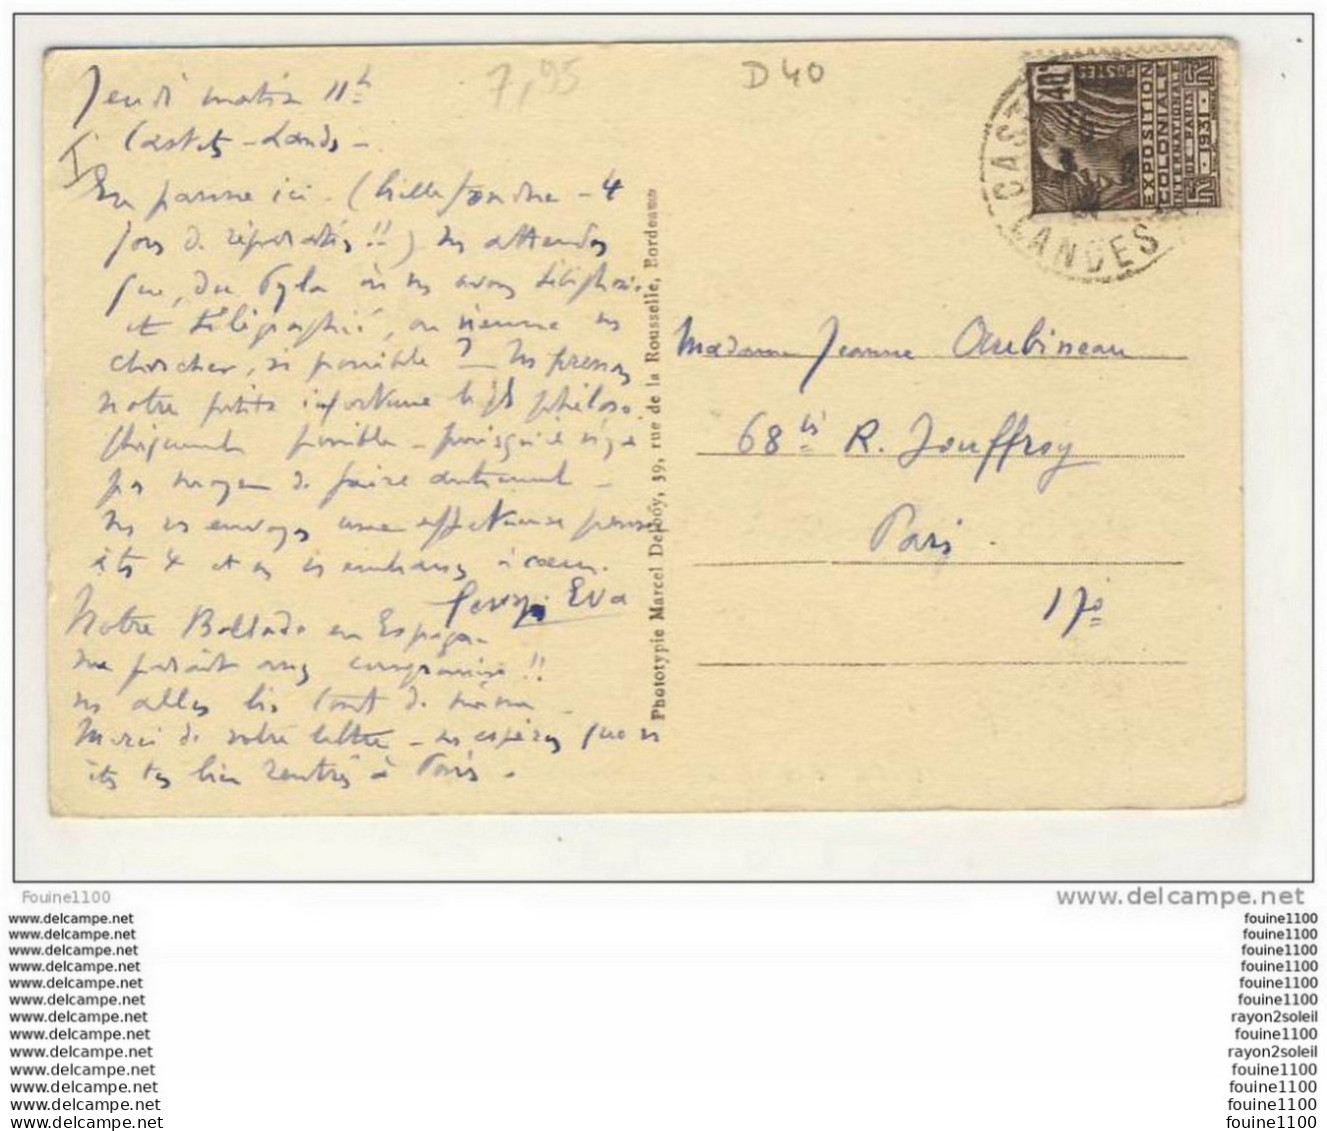 7,95
D 40
Jeudi matin 11h
Castets - Landes -
En panne ici. (bielle fondue - 4
jours de réparations !!) ns attendons
que, du Pyla où ns avons téléphoné
et télégraphié, on vienne ns
chercher, si possible ? Ns prenons
notre petite infortune le plus philoso
phiquement possible - puisqu'il n'y a
pas moyen de faire autrement -
Ns vs envoyons une affectueuse pensée
à ts 4 et ns vs embrassons à coeur.
Eva
Notre Ballade en Espagne
me paraît compromise !!
ns allons bien tout de même -
Merci de votre lettre - ns espérons que vs
êtes ts bien rentrés à Paris.
Phototypie Marcel Delboy, 39, rue de la Rousselle, Bordeaux
CAST
LANDES
40c
POSTES
EXPOSITION
COLONIALE
INTERNATIONALE
DE PARIS
1931
Madame Jeanne Aubineau
68 bis R. Jouffroy
Paris.
17e
Fouine1100
www.delcampe.net
www.delcampe.net
fouine1100
www.delcampe.net
fouine1100
www.delcampe.net
fouine1100
www.delcampe.net
fouine1100
www.delcampe.net
fouine1100
www.delcampe.net
fouine1100
www.delcampe.net
rayon2soleil
www.delcampe.net
fouine1100
www.delcampe.net
rayon2soleil
www.delcampe.net
fouine1100
www.delcampe.net
fouine1100
www.delcampe.net
fouine1100
www.delcampe.net
fouine1100